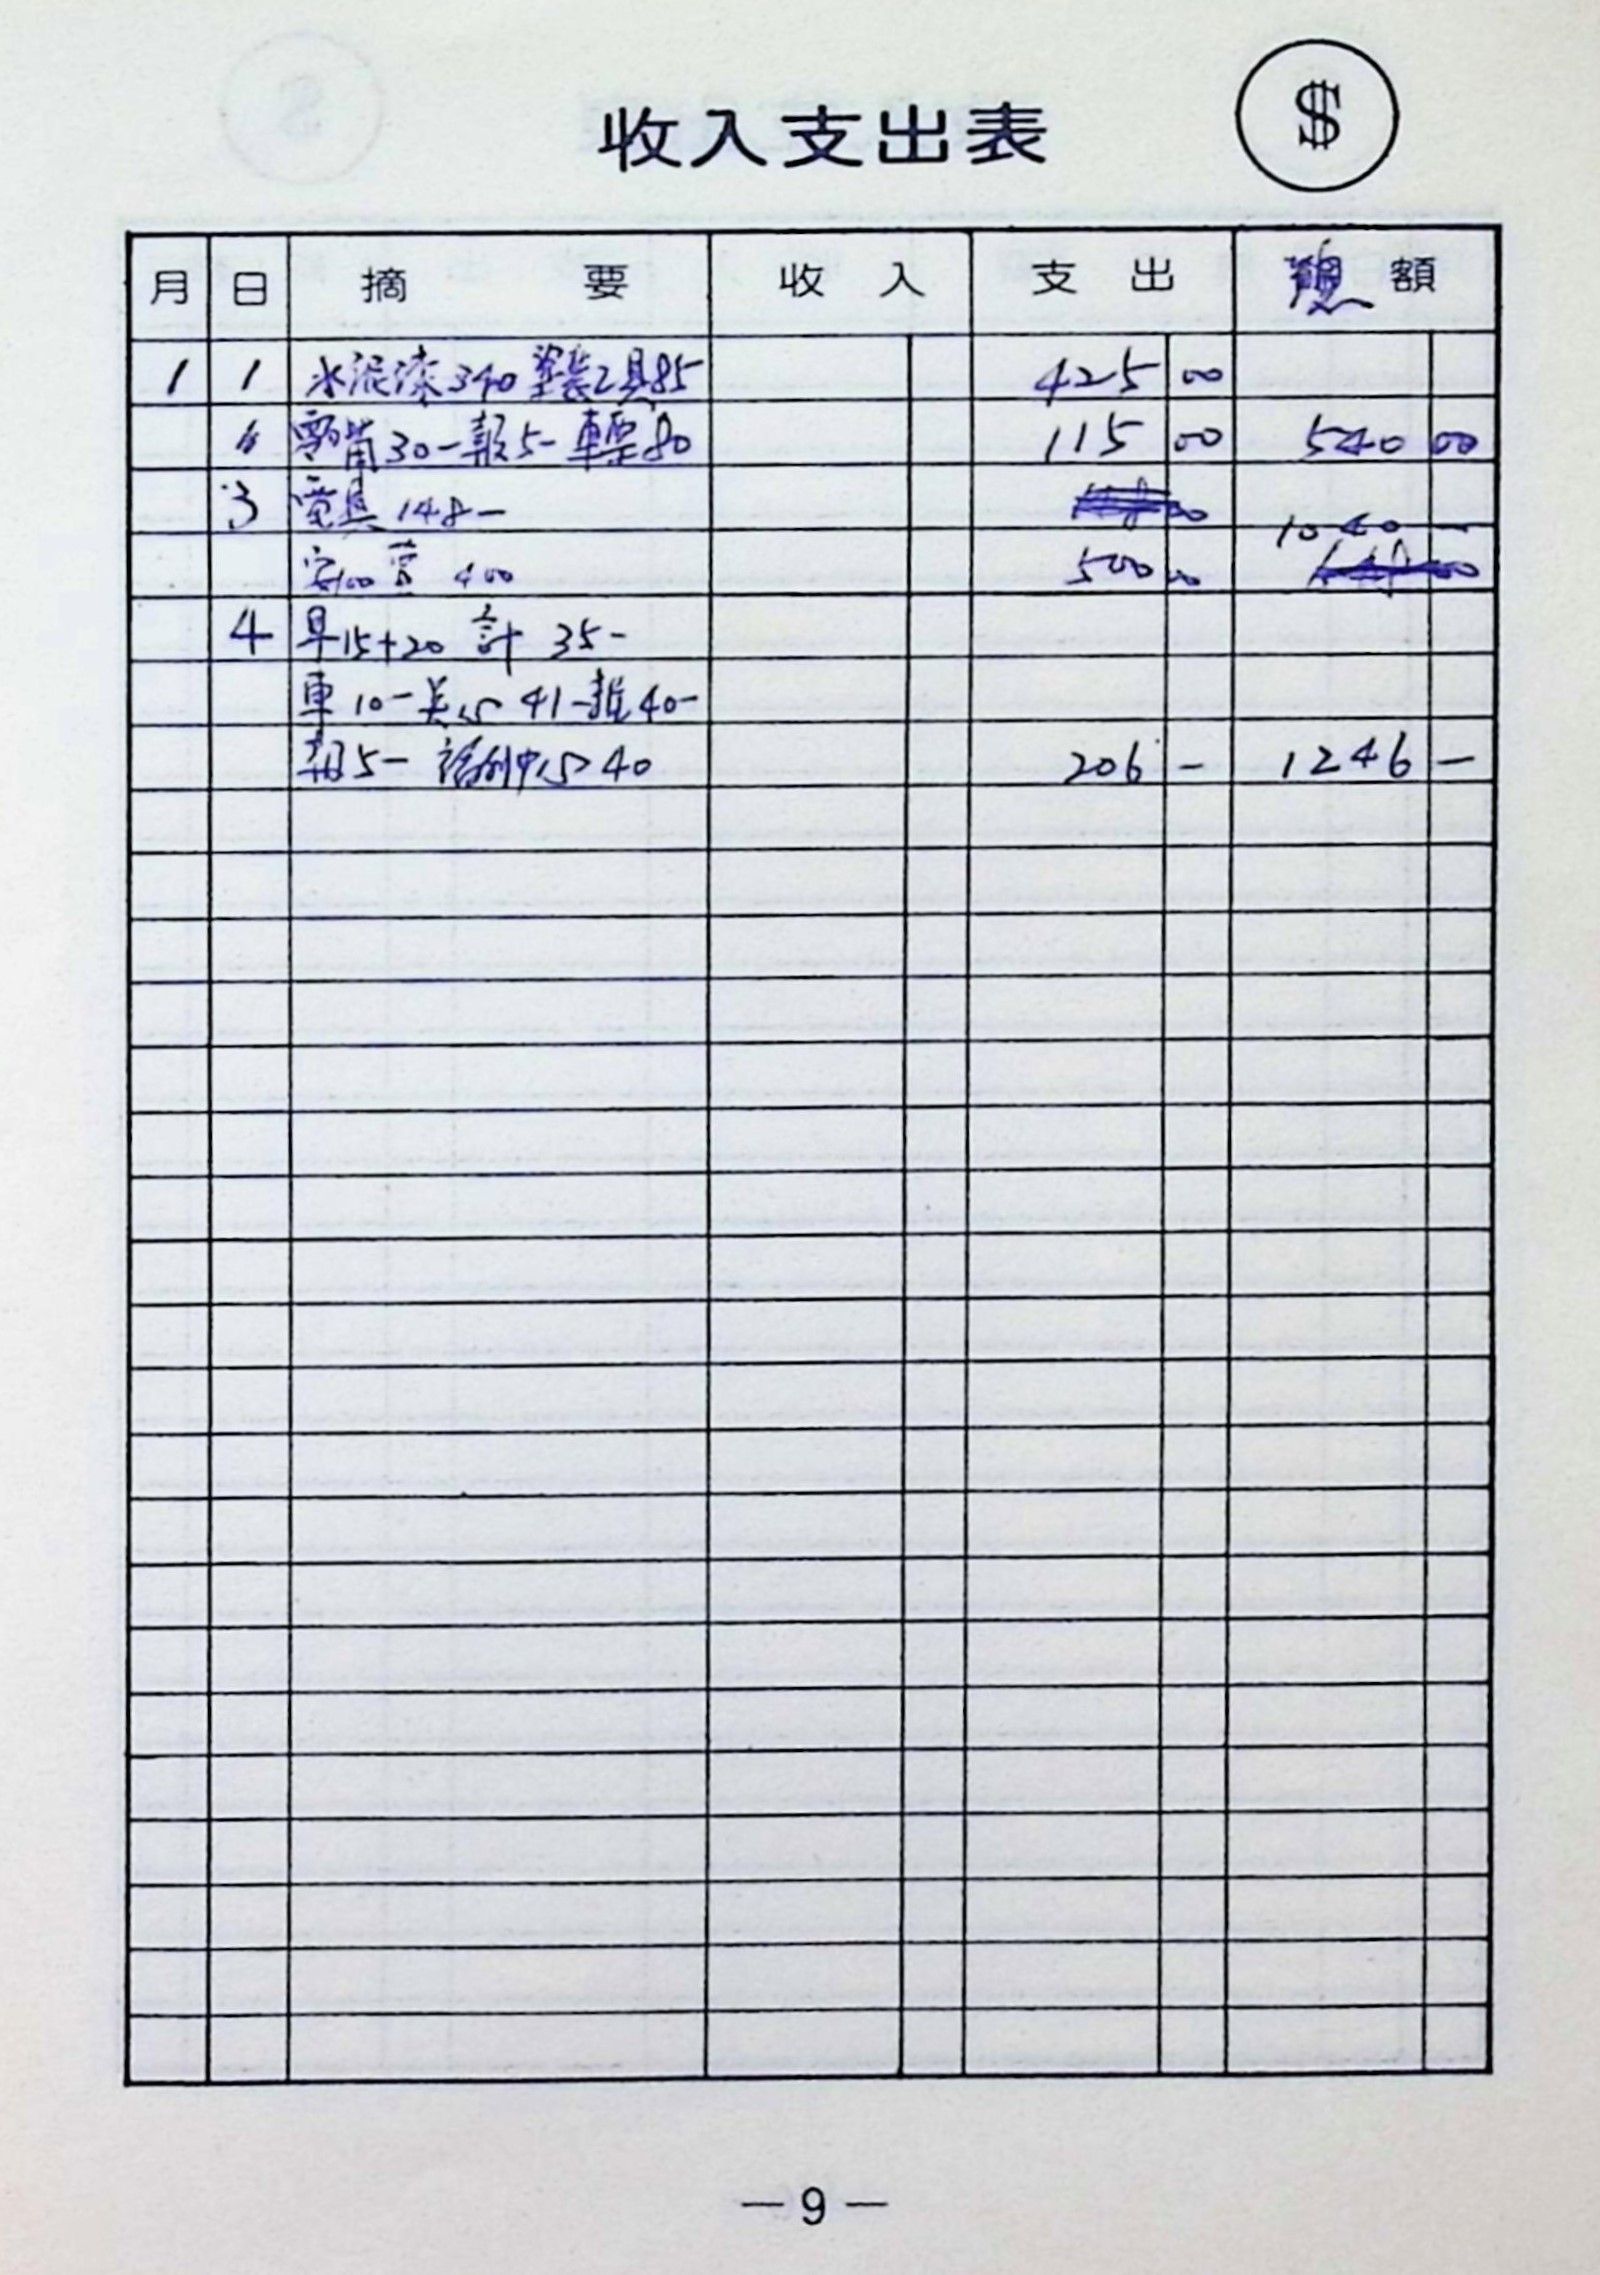 $
收入支出表
月 日 摘要 收入 支出 總額
1 1 水泥漆340 塗裝工具85 425 00
〃 零 30- 報5- 車票80 115 00 540 00
3 電具 148- 00 1040 -
400 500 00 00
4 早15+20 計 35-
車10- 41- 40-
報5- 40 206 - 1246 -
—9—